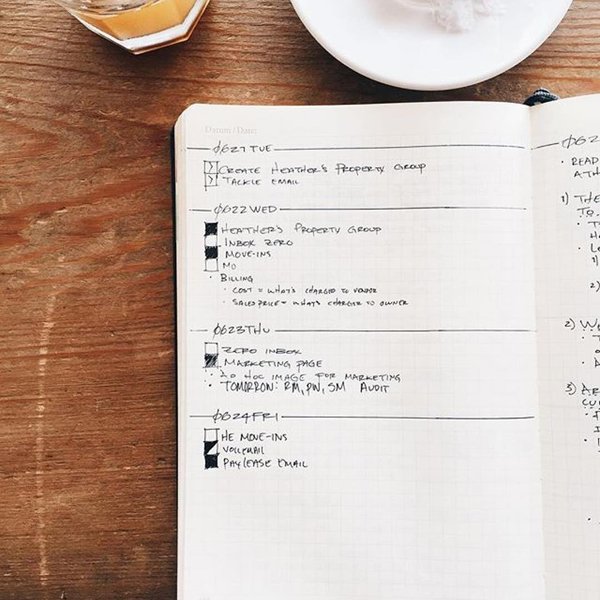 Datum / Date:
0621 TUE
CREATE HEATHER'S PROPERTY GROUP
TACKLE EMAIL
0622 WED
HEATHER'S PROPERTY GROUP
INBOX ZERO
MOVE-INS
MO
• BILLING
• COST = WHAT'S CHARGED TO VENDOR
• SALES PRICE = WHAT'S CHARGED TO OWNER
0623 THU
ZERO INBOX
MARKETING PAGE
• AD HOC IMAGE FOR MARKETING
• TOMORROW: RM, PW, SM AUDIT
0624 FRI
HE MOVE-INS
VOICEMAIL
PAYLEASE EMAIL
• READ
1) THE
TO
2)
2)
3)